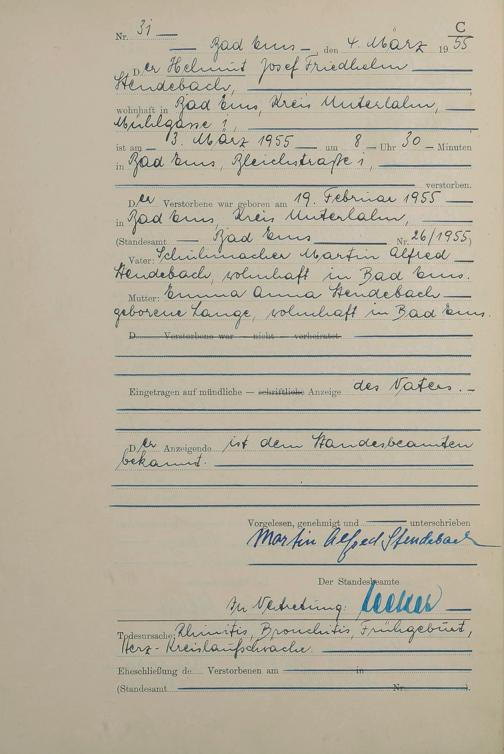 Nr. 31 C
Bad Ems, den 4. März 1955
Der Helmut Josef Friedhelm
Stendebach,
wohnhaft in Bad Ems, Kreis Unterlahn,
Mühlgasse 1,
ist am 3. März 1955 um 8 Uhr 30 Minuten
in Bad Ems, Bleichstraße 1,
verstorben.
Der Verstorbene war geboren am 19. Februar 1955
in Bad Ems, Kreis Unterlahn,
(Standesamt Bad Ems Nr. 26/1955)
Vater: Schuhmacher Martin Alfred
Stendebach, wohnhaft in Bad Ems.
Mutter: Emma Anna Stendebach
geborene Lange, wohnhaft in Bad Ems.
D Verstorbene war — nicht — verheiratet
Eingetragen auf mündliche — schriftliche Anzeige des Vaters. —
Der Anzeigende ist dem Standesbeamten
bekannt.
Vorgelesen, genehmigt und unterschrieben
Martin Alfred Stendebach
Der Standesbeamte
In Vertretung:
Todesursache: Rhinitis, Bronchitis, Frühgeburt,
Herz-Kreislaufschwäche.
Eheschließung de Verstorbenen am in
(Standesamt Nr. ).